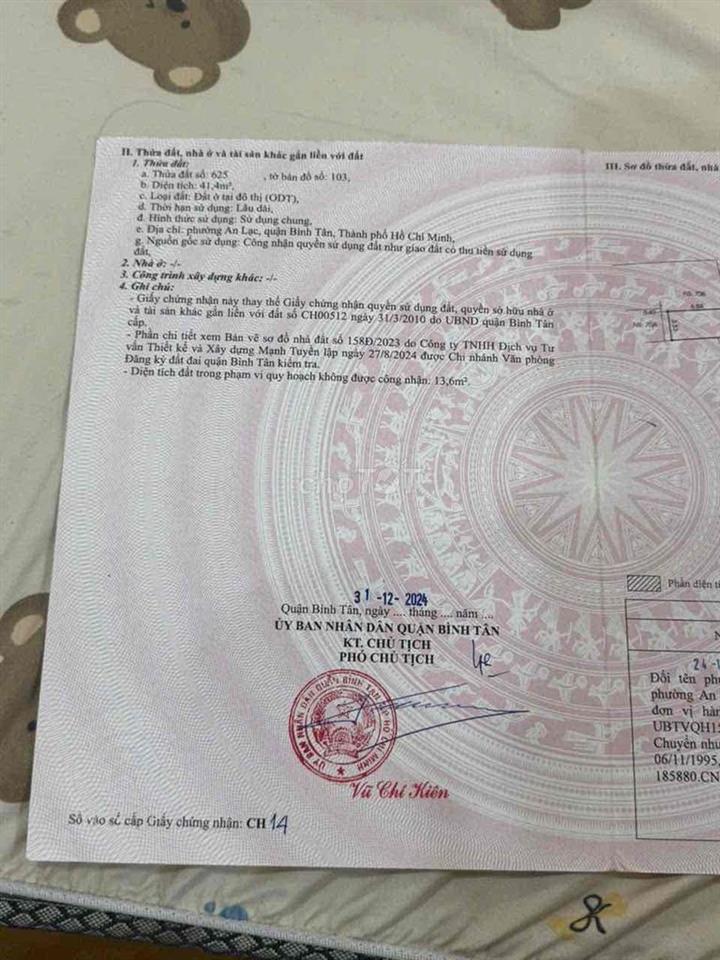 II. Thửa đất, nhà ở và tài sản khác gắn liền với đất
1. Thửa đất:
a. Thửa đất số: 625 , tờ bản đồ số: 103,
b. Diện tích: 41,4m²,
c. Loại đất: Đất ở tại đô thị (ODT),
d. Thời hạn sử dụng: Lâu dài,
đ. Hình thức sử dụng: Sử dụng chung,
e. Địa chỉ: phường An Lạc, quận Bình Tân, Thành phố Hồ Chí Minh,
g. Nguồn gốc sử dụng: Công nhận quyền sử dụng đất như giao đất có thu tiền sử dụng
đất,
2. Nhà ở: -/-
3. Công trình xây dựng khác: -/-
4. Ghi chú:
- Giấy chứng nhận này thay thế Giấy chứng nhận quyền sử dụng đất, quyền sở hữu nhà ở
và tài sản khác gắn liền với đất số CH00512 ngày 31/3/2010 do UBND quận Bình Tân
cấp.
- Phần chi tiết xem Bản vẽ sơ đồ nhà đất số 158Đ/2023 do Công ty TNHH Dịch vụ Tư
vấn Thiết kế và Xây dựng Mạnh Tuyền lập ngày 27/8/2024 được Chi nhánh Văn phòng
Đăng ký đất đai quận Bình Tân kiểm tra.
- Diện tích đất trong phạm vi quy hoạch không được công nhận: 13,6m².
31 -12- 2024
Quận Bình Tân, ngày .... tháng .... năm ....
ỦY BAN NHÂN DÂN QUẬN BÌNH TÂN
KT. CHỦ TỊCH
PHÓ CHỦ TỊCH
ỦY BAN NHÂN DÂN QUẬN BÌNH TÂN TP HỒ CHÍ MINH
Vũ Chí Kiên
Số vào sổ cấp Giấy chứng nhận: CH 14
III. Sơ đồ thửa đất, nhà
Phần diện t
24 -1
Đổi tên phư
phường An
đơn vị hàn
UBTVQH15
Chuyển như
06/11/1995,
185880.CN